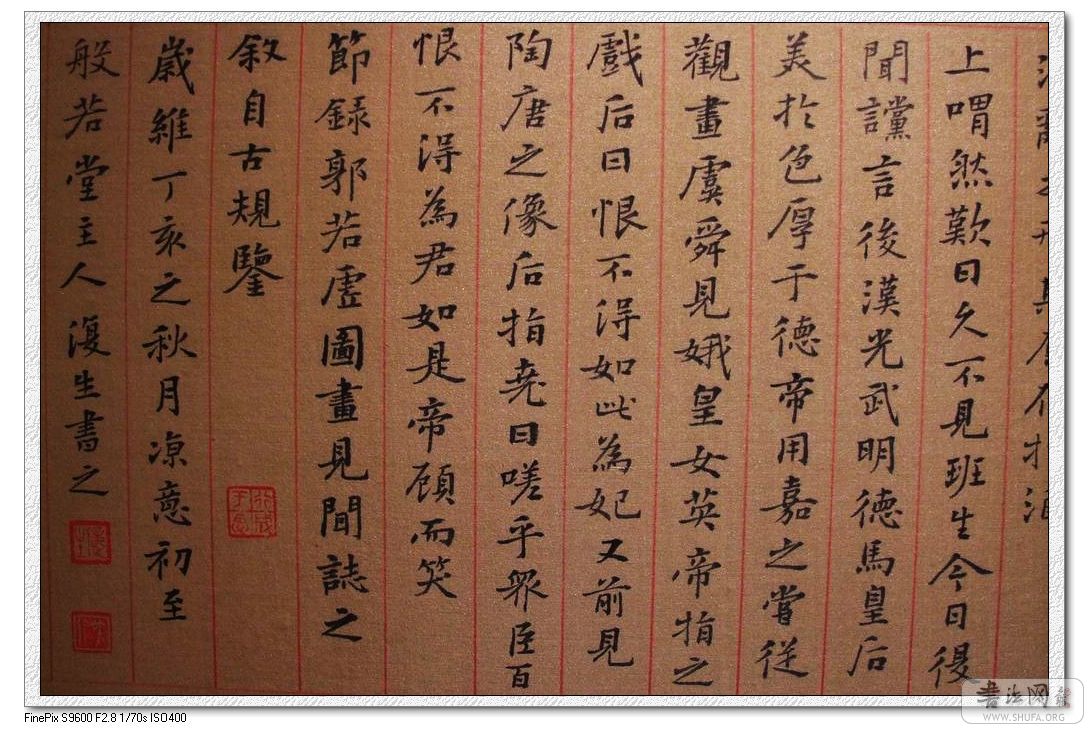 上喟然歎曰久不見班生今日復
聞讜言後漢光武明德馬皇后
美於色厚于德帝用嘉之嘗從
觀畫虞舜見娥皇女英帝指之
戲后曰恨不得如此為妃又前見
陶唐之像后指堯曰嗟乎羣臣百
恨不得為君如是帝顧而笑
節録郭若虛圖畫見聞誌之
敘自古規鑒
歲維丁亥之秋月凉意初至
般若堂主人復生書之
FinePix S9600 F2.8 1/70s ISO400
书法网
WWW.SHUFA.ORG